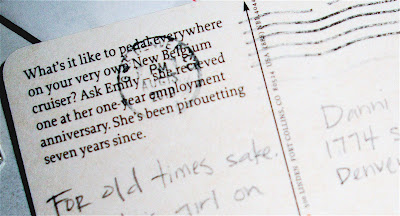 What's it like to pedal everywhere
on your very own New Belgium
cruiser? Ask Emily - she recieved
one at her one-year employment
anniversary. She's been pirouetting
seven years since.
For old times sake.
girl on
PM
500 LINDEN FORT COLLINS CO. 80524
Danni
1774 S
Denve